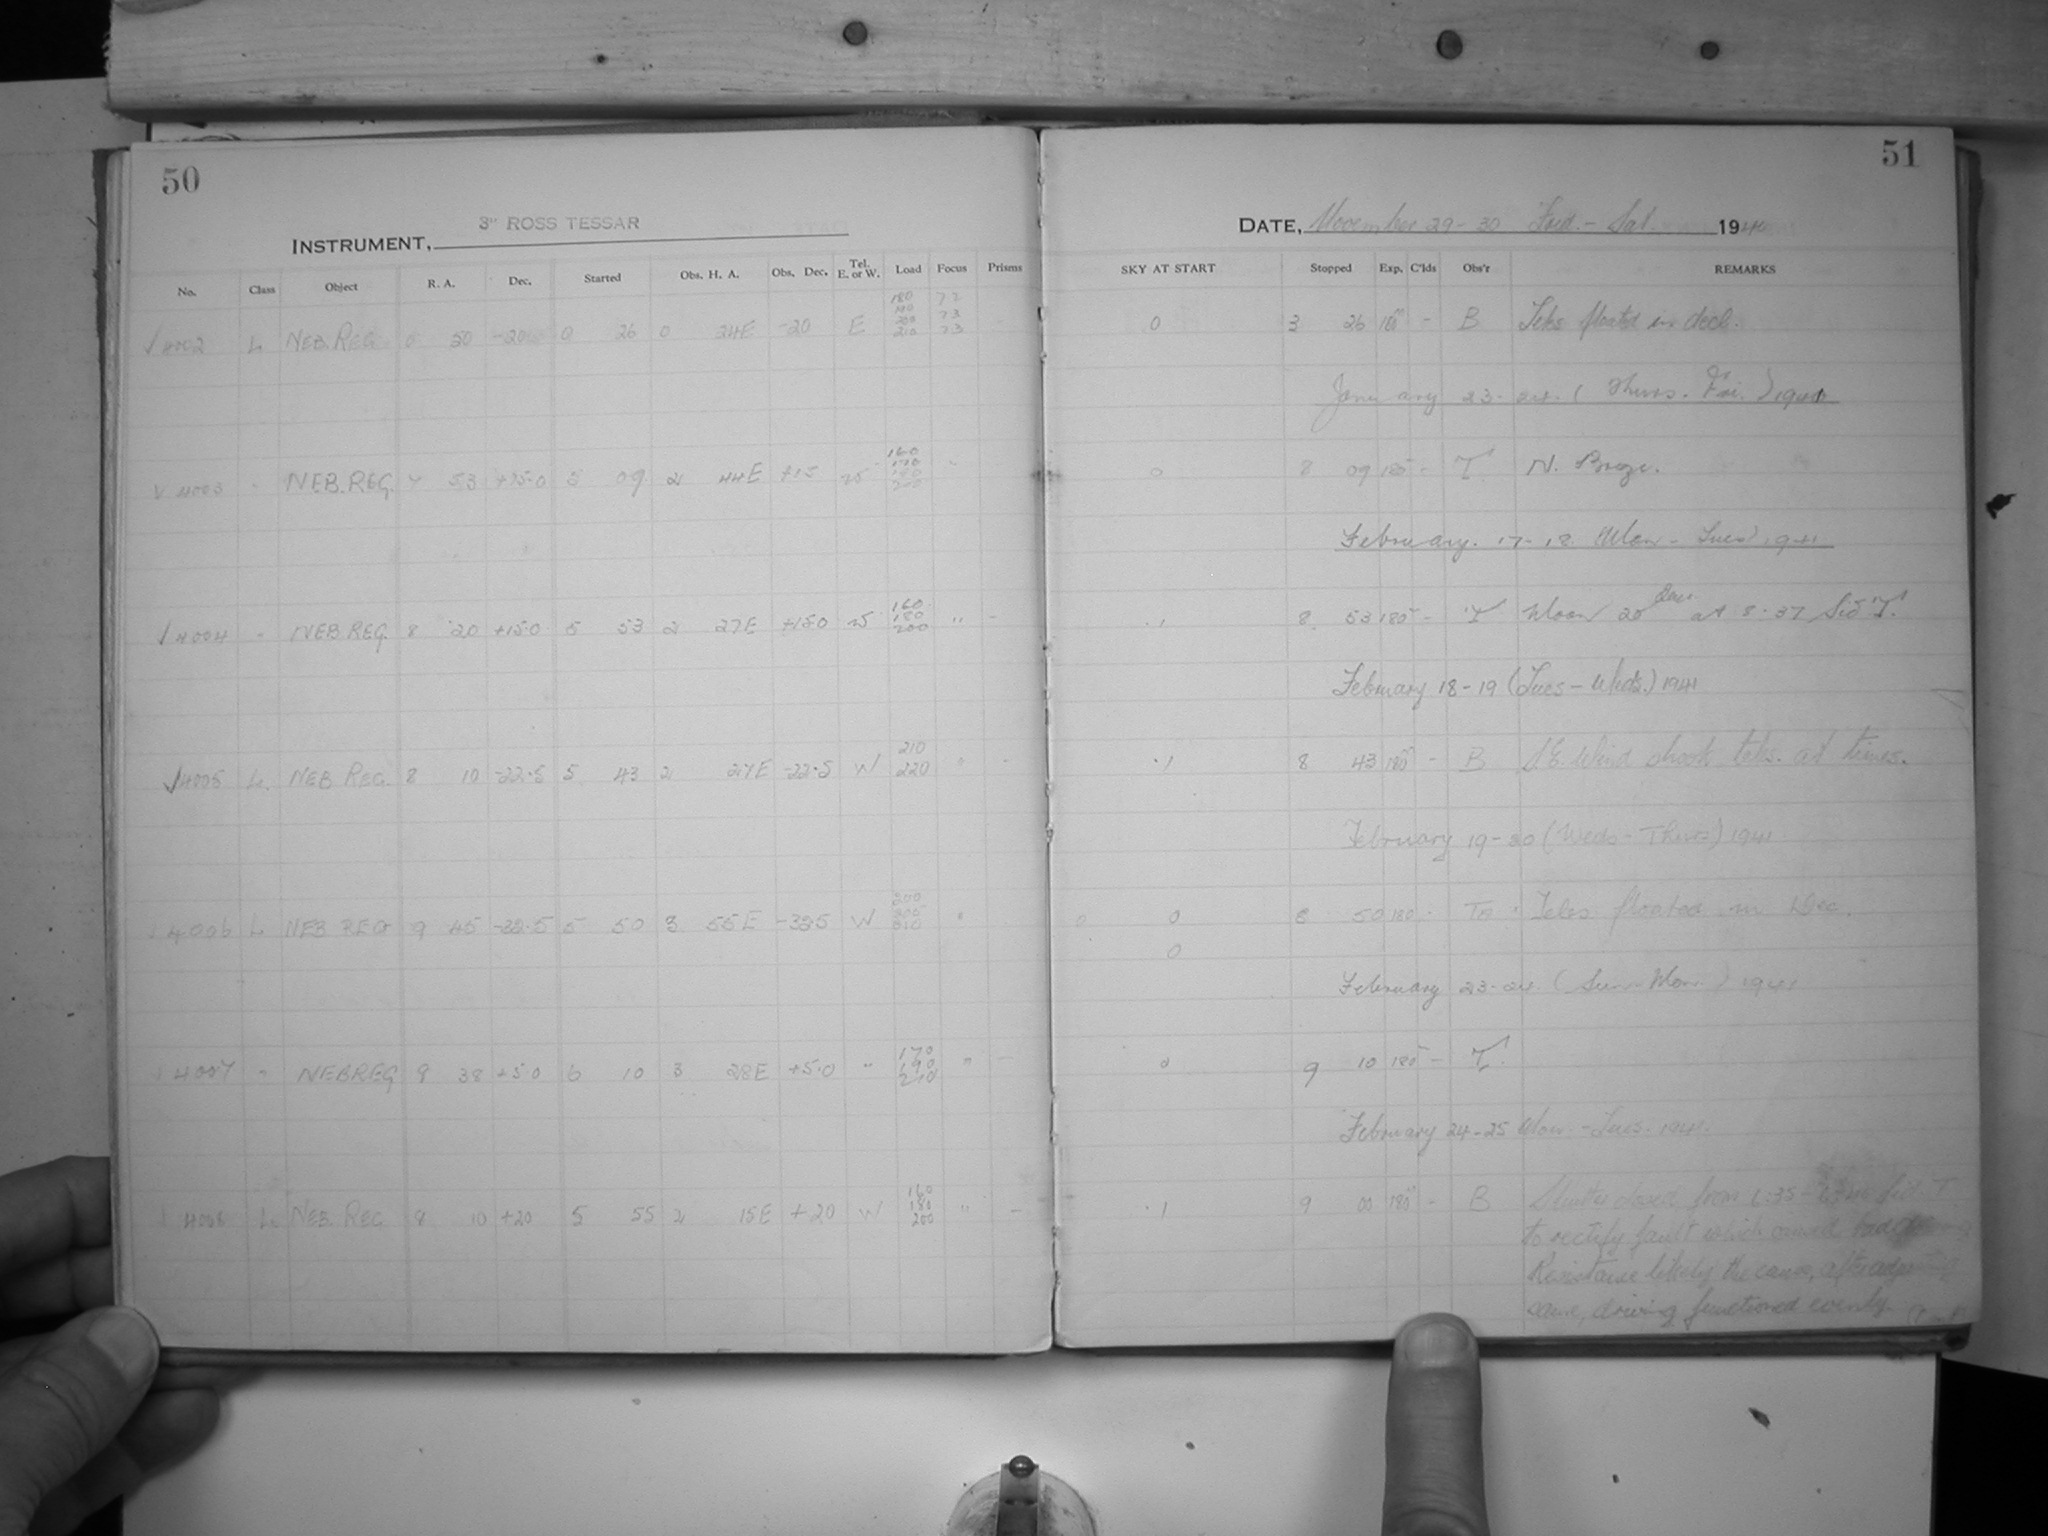 50
3" ROSS TESSAR
INSTRUMENT,
No. Class Object R. A. Dec. Started Obs. H. A. Obs. Dec. Tel. E. or W. Load Focus Prisms
180 72
190
200 73
√ 4002 L NEB. REG. 0 50 -20 0 26 0 24E -20 E 210 73
160
170
√ 4003 " NEB. REG. 7 53 +15.0 5 09 2 44E +15 W 200 "
160
180
√ 4004 " NEB REG. 8 20 +15.0 5 53 2 27E +15.0 W 200 " -
210
√ 4005 L. NEB REG. 8 10 -22.5 5 43 2 27E -22.5 W 220 " -
200
205
√ 4006 L NEB REG 9 45 -32.5 5 50 3 55E -32.5 W 210 "
170
190
4007 " NEB REG 9 38 +5.0 6 10 3 28E +5.0 " 210 " -
160
180
4008 L. NEB. REG 8 10 +20 5 55 2 15E +20 W 200 " -
51
DATE, November 29-30 Frid. - Sat. 1940
SKY AT START Stopped Exp. C'lds Obs'r REMARKS
0 3 26 180 - B Teles floated in decl.
January 23-24. (Thurs. Fri.) 1941
0 8 09 180 - T N. Breeze.
February. 17-18. Mon - Tues 1941
.1 8 53 180 - T Moon 20 at 8.37 Sid T.
February 18-19 (Tues - Weds.) 1941
.1 8 43 180 - B S.E. Wind shook teles. at times.
February 19-20 (Weds - Thurs) 1941
0 8 50 180 - Teles floated in Dec.
0
February 23-24 (Sun - Mon.) 1941
0 9 10 180 - T.
February 24-25 Mon - Tues. 1941.
.1 9 00 180 - B Shutter closed from 6:35 - Sid. T
to rectify fault which caused bad
Resistance likely the cause, after
same, driving functioned evenly.